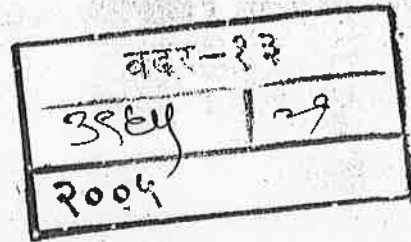 बदर-१३
३९६५ | २१
२००५